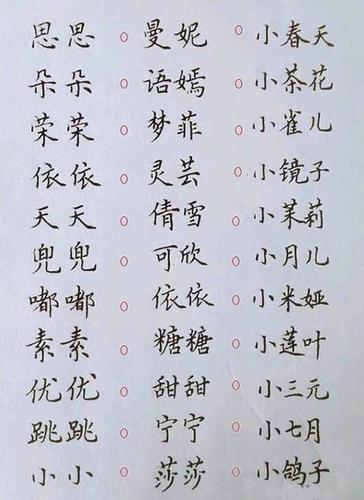 思思 曼妮 小春天
朵朵 语嫣 小茶花
荣荣 梦菲 小雀儿
依依 灵芸 小镜子
天天 倩雪 小茉莉
兜兜 可欣 小月儿
嘟嘟 依依 小米娅
素素 糖糖 小莲叶
优优 甜甜 小三元
跳跳 宁宁 小七月
小小 莎莎 小鸽子